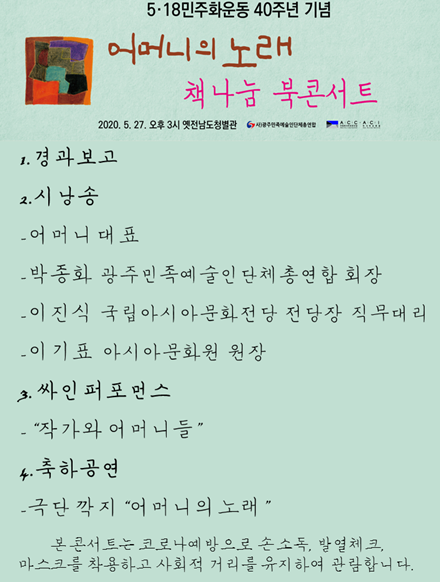 5·18민주화운동 40주년 기념
어머니의 노래
책나눔 북콘서트
2020. 5. 27. 오후 3시 옛전남도청별관 사)광주민족예술인단체총연합 ACC ACI
1. 경과보고
2. 시낭송
-어머니대표
-박종화 광주민족예술인단체총연합 회장
-이진식 국립아시아문화전당 전당장 직무대리
-이기표 아시아문화원 원장
3. 싸인퍼포먼스
- “작가와 어머니들”
4. 축하공연
-극단 깍지 “어머니의 노래”
본 콘서트는 코로나예방으로 손 소독, 발열체크,
마스크를 착용하고 사회적 거리를 유지하여 관람합니다.